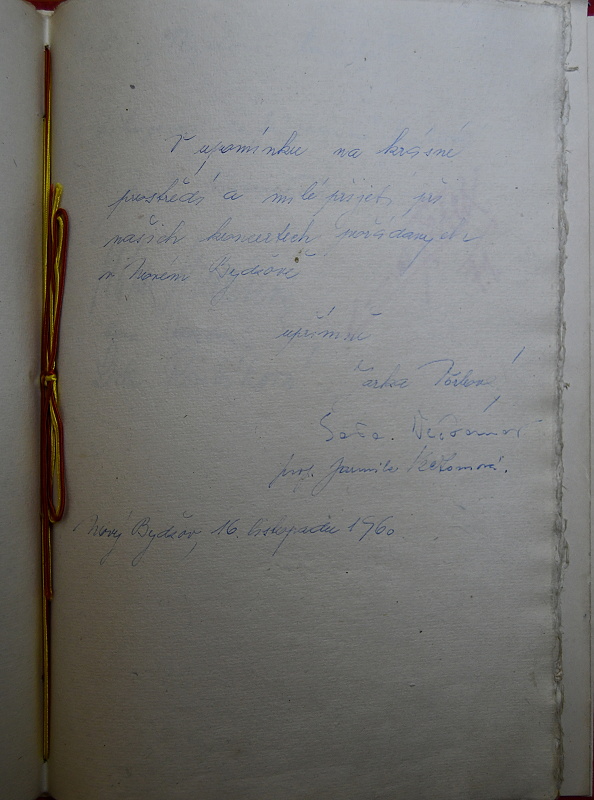 V upomínku na krásné
prostředí a milé přijetí při
našich koncertech pořádaných
v Novém Bydžově
upřímně
Šárka
Saša
prof. Jarmila
Nový Bydžov, 16. listopadu 1960